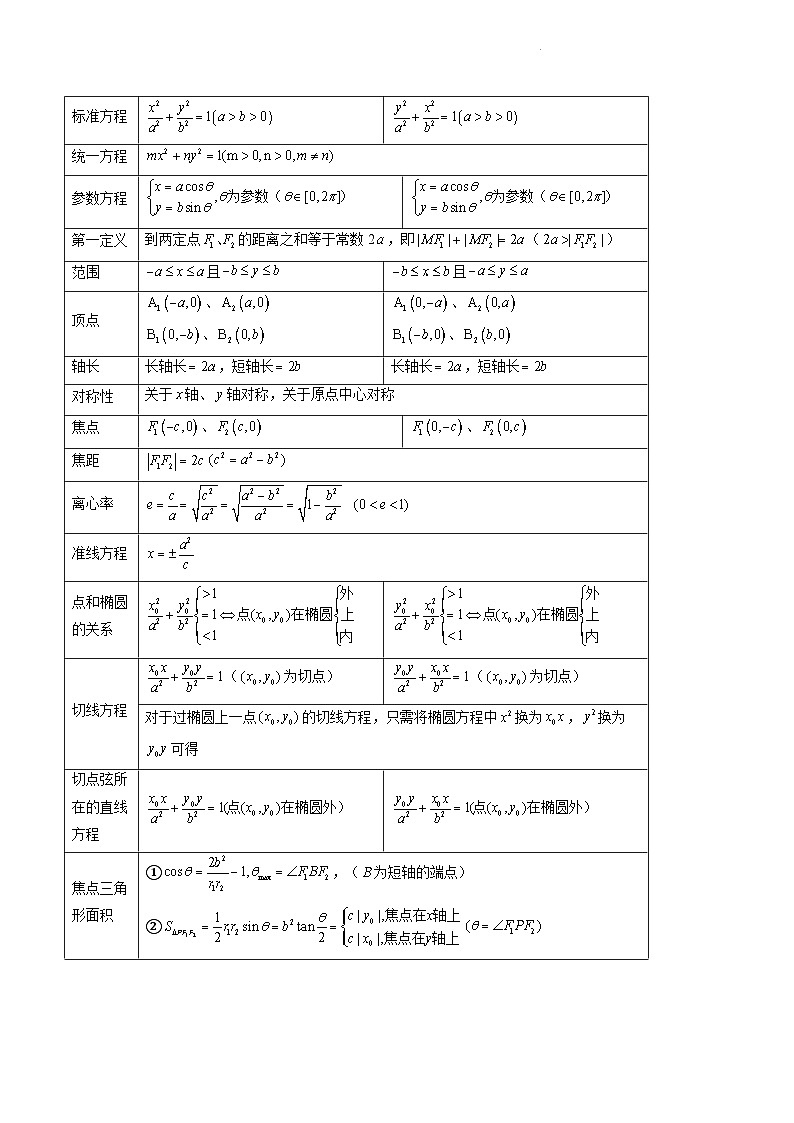 标准方程 $\frac{x^2}{a^2}+\frac{y^2}{b^2}=1(a>b>0)$ $\frac{y^2}{a^2}+\frac{x^2}{b^2}=1(a>b>0)$
统一方程 $mx^2+ny^2=1(\mathrm{m}>0,\mathrm{n}>0,m\neq n)$
参数方程 $\begin{cases}x=a\cos\theta\\y=b\sin\theta\end{cases},\theta$为参数（$\theta\in[0,2\pi]$） $\begin{cases}x=a\cos\theta\\y=b\sin\theta\end{cases},\theta$为参数（$\theta\in[0,2\pi]$）
第一定义 到两定点$F_1$、$F_2$的距离之和等于常数$2a$，即$|MF_1|+|MF_2|=2a$（$2a>|F_1F_2|$）
范围 $-a\leq x\leq a$且$-b\leq y\leq b$ $-b\leq x\leq b$且$-a\leq y\leq a$
顶点 $\mathrm{A}_1(-a,0)$、$\mathrm{A}_2(a,0)$ $\mathrm{A}_1(0,-a)$、$\mathrm{A}_2(0,a)$
$\mathrm{B}_1(0,-b)$、$\mathrm{B}_2(0,b)$ $\mathrm{B}_1(-b,0)$、$\mathrm{B}_2(b,0)$
轴长 长轴长$=2a$，短轴长$=2b$ 长轴长$=2a$，短轴长$=2b$
对称性 关于$x$轴、$y$轴对称，关于原点中心对称
焦点 $F_1(-c,0)$、$F_2(c,0)$ $F_1(0,-c)$、$F_2(0,c)$
焦距 $|F_1F_2|=2c\ (c^2=a^2-b^2)$
离心率 $e=\frac{c}{a}=\sqrt{\frac{c^2}{a^2}}=\sqrt{\frac{a^2-b^2}{a^2}}=\sqrt{1-\frac{b^2}{a^2}}\ (0<e<1)$
准线方程 $x=\pm\frac{a^2}{c}$
点和椭圆
的关系 $\frac{x_0^2}{a^2}+\frac{y_0^2}{b^2}\begin{cases}>1\\=1\\<1\end{cases}\Leftrightarrow$点$(x_0,y_0)$在椭圆$\begin{cases}外\\上\\内\end{cases}$ $\frac{y_0^2}{a^2}+\frac{x_0^2}{b^2}\begin{cases}>1\\=1\\<1\end{cases}\Leftrightarrow$点$(x_0,y_0)$在椭圆$\begin{cases}外\\上\\内\end{cases}$
切线方程 $\frac{x_0x}{a^2}+\frac{y_0y}{b^2}=1$（$(x_0,y_0)$为切点） $\frac{y_0y}{a^2}+\frac{x_0x}{b^2}=1$（$(x_0,y_0)$为切点）
对于过椭圆上一点$(x_0,y_0)$的切线方程，只需将椭圆方程中$x^2$换为$x_0x$，$y^2$换为
$y_0y$可得
切点弦所
在的直线
方程 $\frac{x_0x}{a^2}+\frac{y_0y}{b^2}=1$(点$(x_0,y_0)$在椭圆外） $\frac{y_0y}{a^2}+\frac{x_0x}{b^2}=1$(点$(x_0,y_0)$在椭圆外）
焦点三角
形面积 ①$\cos\theta=\frac{2b^2}{r_1r_2}-1,\theta_{\max}=\angle F_1BF_2$，（$B$为短轴的端点）
②$S_{\Delta PF_1F_2}=\frac{1}{2}r_1r_2\sin\theta=b^2\tan\frac{\theta}{2}=\begin{cases}c|y_0|,焦点在x轴上\\c|x_0|,焦点在y轴上\end{cases}(\theta=\angle F_1PF_2)$